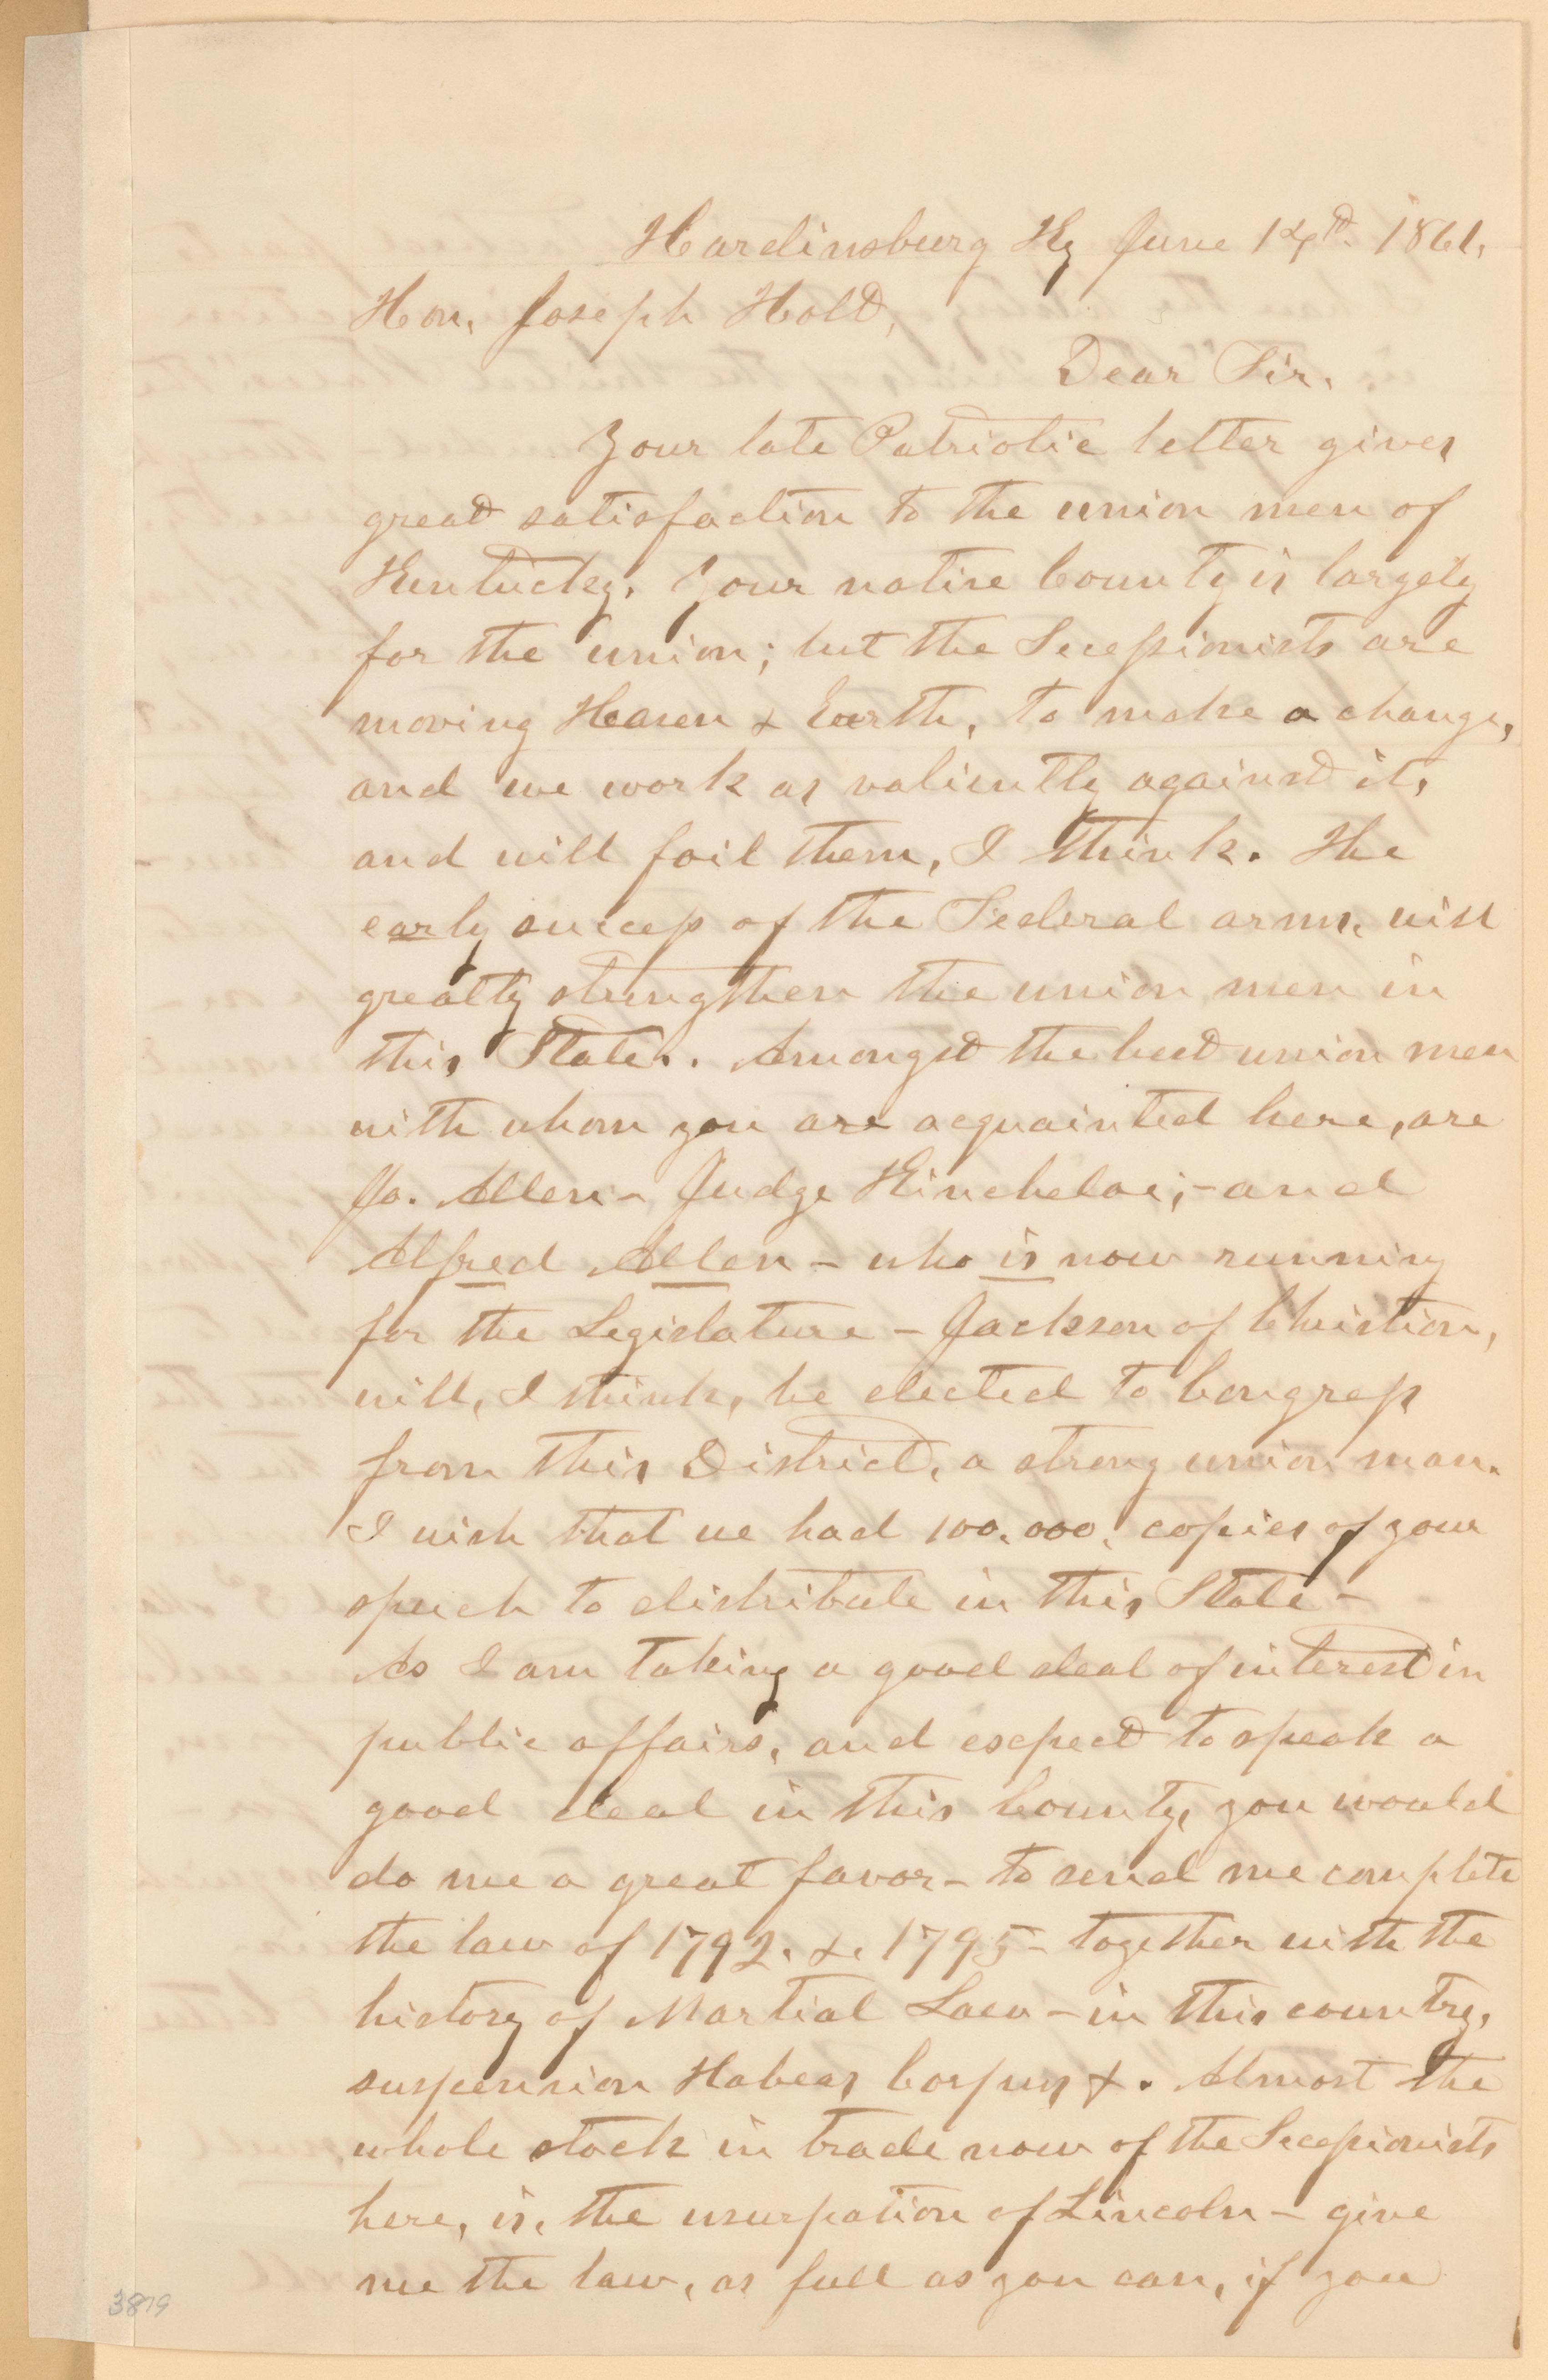 Hardinsburg Ky June 14th. 1861.
Hon. Joseph Holt,
Dear Sir.
Your late Patriotic letter gives
great satisfaction to the union men of
Kentucky. Your native County is largely
for the union; but the Secessionists are
moving Heaven & Earth, to make a change,
and we work as valiently against it,
and will foil them, I think. The
early success of the Federal arms, will
greatly strengthen the union men in
this State. Amongst the best union men
with whom you are acquainted here, are
Jo. Allen - Judge Kincheloe; - and
Alfred Allen - who is now running
for the Legislature - Jackson of Christian,
will, I think, be elected to Congress
from this District, a strong union man.
I wish that we had 100.000. copies of your
speech to distribute in this State -
As I am taking a good deal of interest in
public affairs, and expect to speak a
good deal in this County, you would
do me a great favor - to send me complete
the law of 1792. &. 1795 - together with the
history of Martial Law - in this country,
suspension Habeas Corpus &. Almost the
whole stock in trade now of the Secessionists
here, is, the usurpation of Lincoln - give
me the law, as full as you can, if you
3879